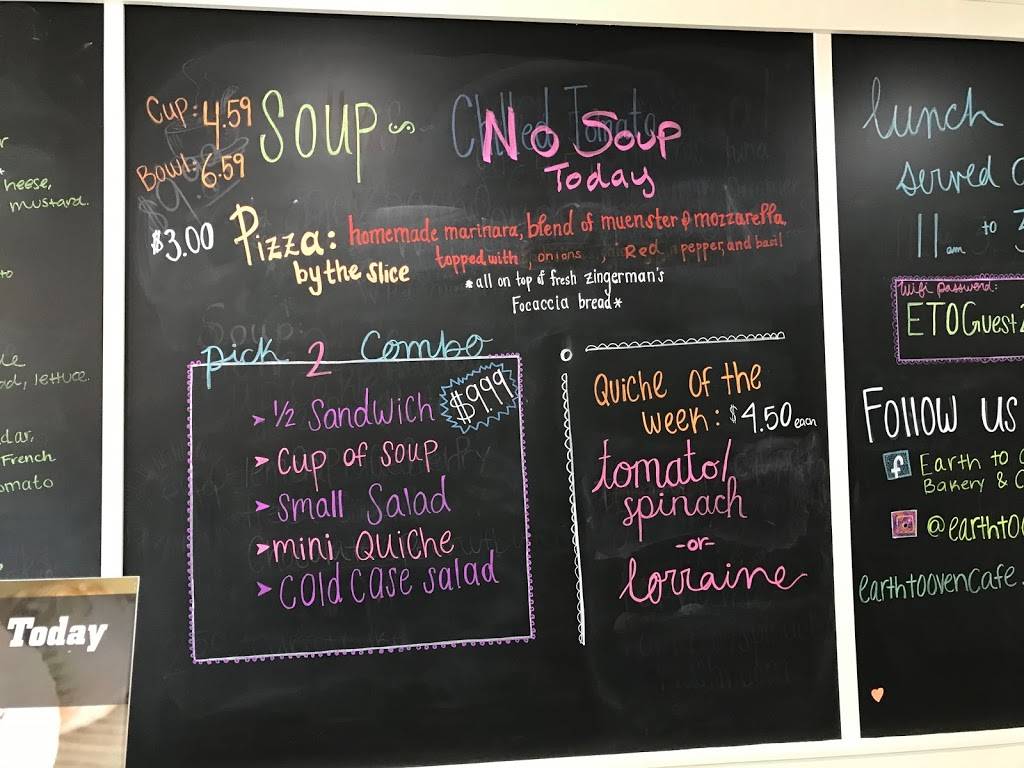 heese,
mustard.
to
ad, lettuce.
dar,
French
omato
Today
Cup: 4.59
Bowl: 6.59
Soup~
Chilled Tomato
No Soup
Today
$3.00 Pizza: homemade marinara, blend of muenster & mozzarella,
by the slice
topped with onions Red pepper, and basil
*all on top of fresh Zingerman's
Focaccia bread*
Soup:
pick 2 Combo
$9.99
➤ ½ Sandwich
➤ Cup of Soup
➤ Small Salad
➤ mini Quiche
➤ Cold case salad
Quiche of the
week: $4.50 each
tomato/
spinach
-or-
lorraine
lunch
served
11 am to 3
Wifi password:
ETOGuest
Follow us
f Earth to
Bakery & C
@earthto
earthtoovencafe.